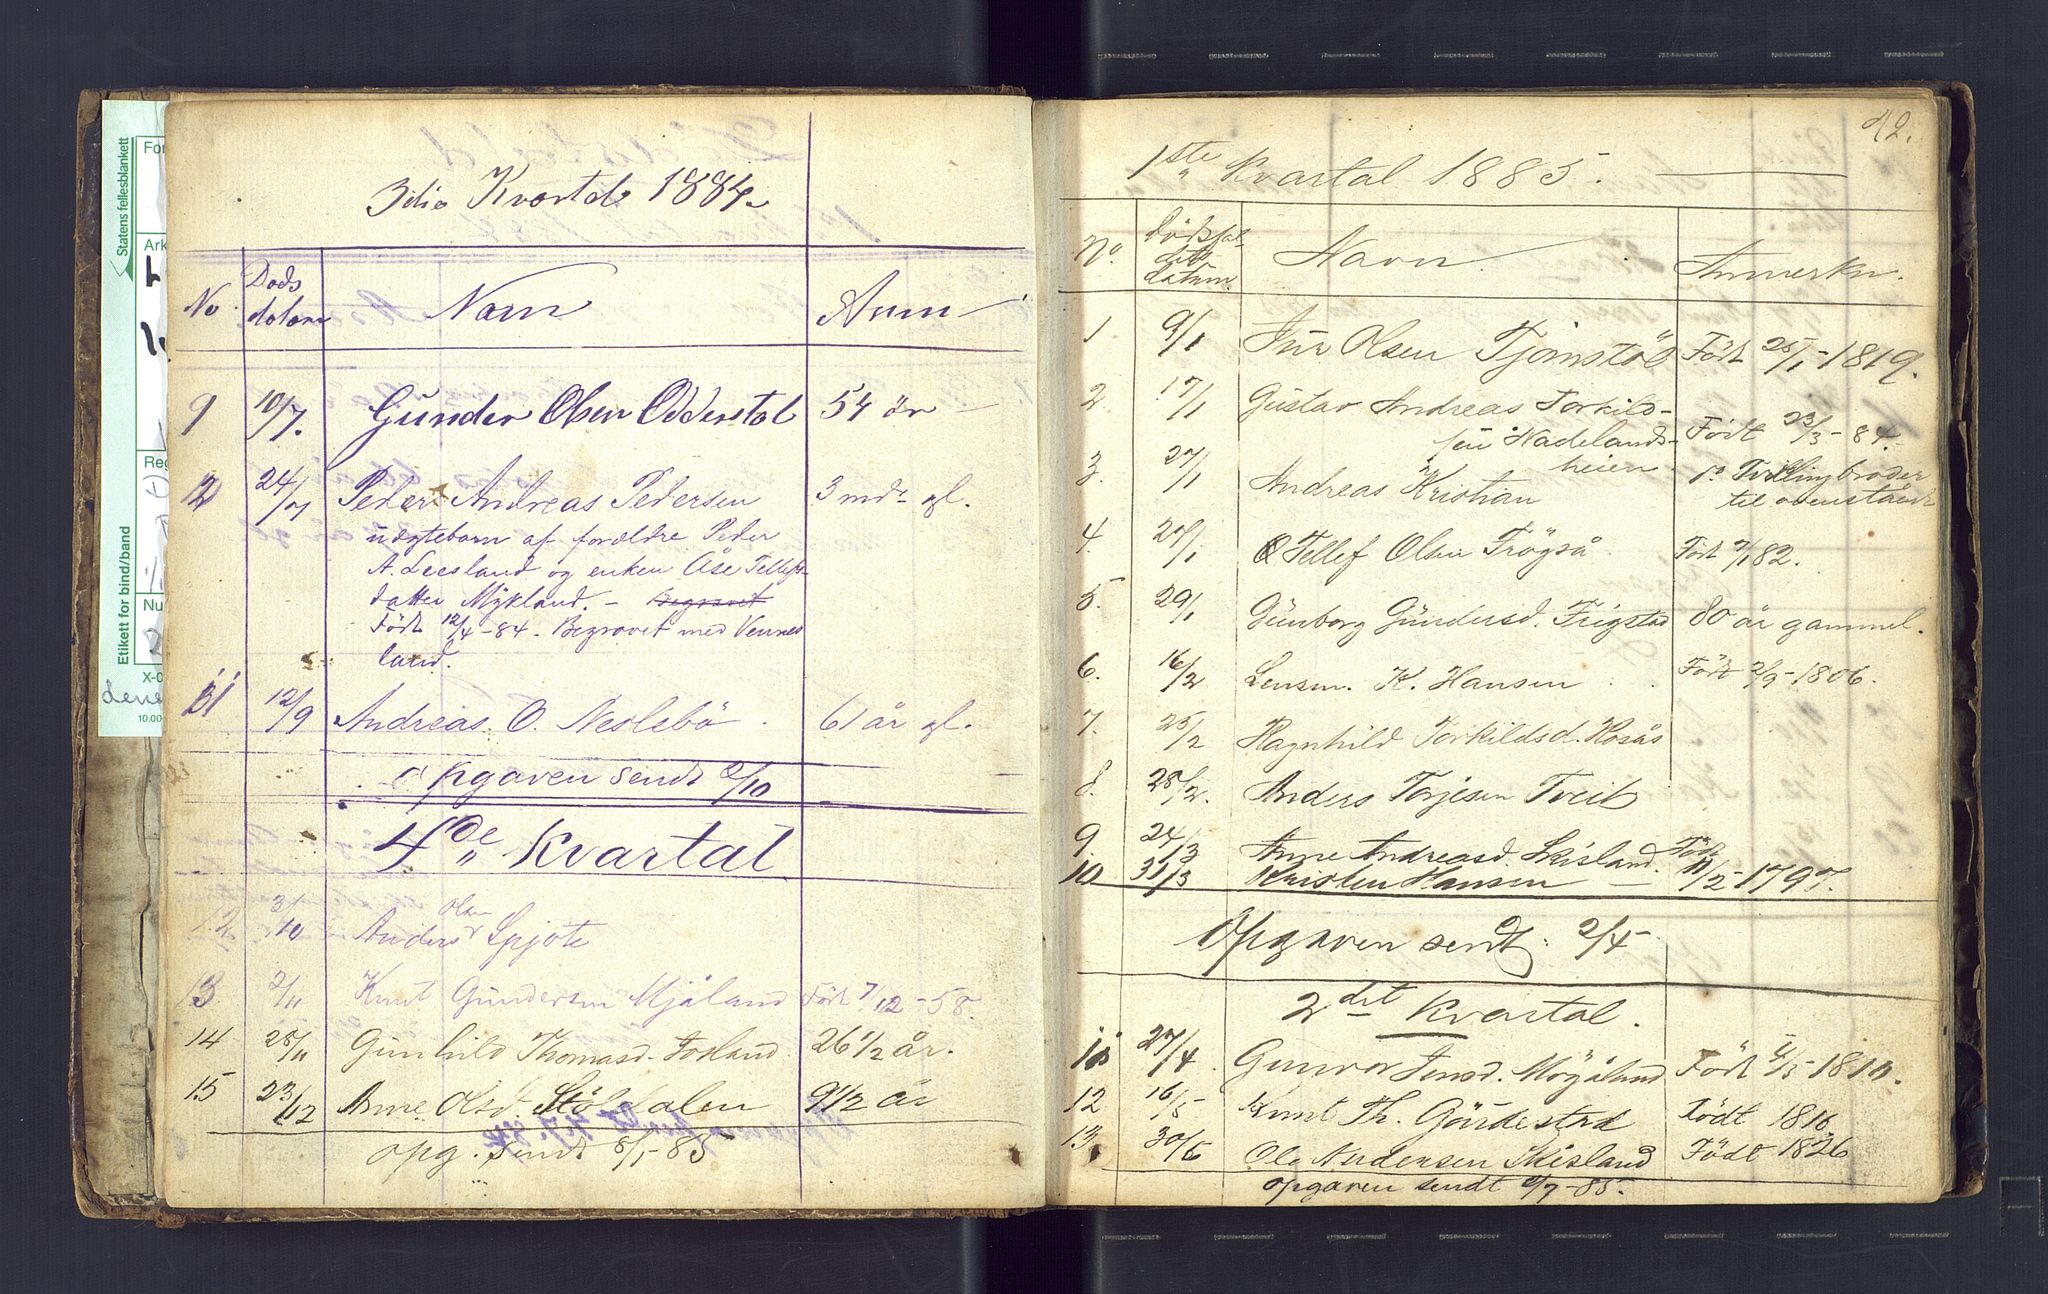 Statens fellesblankett
Etikett for bind/bånd
3die Kvartal 1884
No. Døds datum Navn Anm
9 10/7. Gunder Olsen Odderstøl 54 år
24/7 Peder Andreas Pedersen 3 mdr gl.
uægteborn af forældre Peder
A. Leesland og enken Åse Tellefs-
datter Mykland. – Begravet
Født 12/4-84. Begravet med Vennes
land.
11 12/9 Andreas O. Neslebö 61 år gl.
Opgaven sendt 2/10
4de Kvartal
12 3/10 Anders Olsen Spjöte
13 2/11 Knut Gundersen Mjåland Født 7/12-58.
14 25/11 Gunhild Thomasd. Fosland 26 1/2 år.
15 23/12 Anne Olsd. Stöldalen 91/2 år
opg. sendt 8/1-85
42.
1ste Kvartal 1885.
No. Dödsfal- det datum. Navn. Anmerkn.
1 9/1 Olsen Tjomstöl Født 25/1-1819.
2 17/1 Gustav Andreas Torkild-
sen Hadelands- Født 23/3-84.
heien
3. 27/1 Andreas Kristian Tvillingbroder
til ovenstående
4. 27/1 Tellef Olsen Trögså Født 7/1 82.
5. 29/1 Gunborg Gundersd. Frigstad 80 år gammel.
6. 16/2 Lensm. K. Hansen Født 2/9-1806.
7. 25/2 Ragnhild Torkildsd. Rosås
8. 28/2. Anders Torjesen Tveit
9. 24/3 Anne Andreasd. Skisland. Født
10 31/3 Kristen Hansen 11/2-1797.
Opgaven sendt 2/4
2det Kvartal.
11 27/4 Gunvor Jensd. Mögåland Født 1810.
12 16/5 Knut Th. Gårdestad Födt 1816
13. 30/6 Ole Andersen Skisland Födt 1826
opgaven sendt 2/7-85.